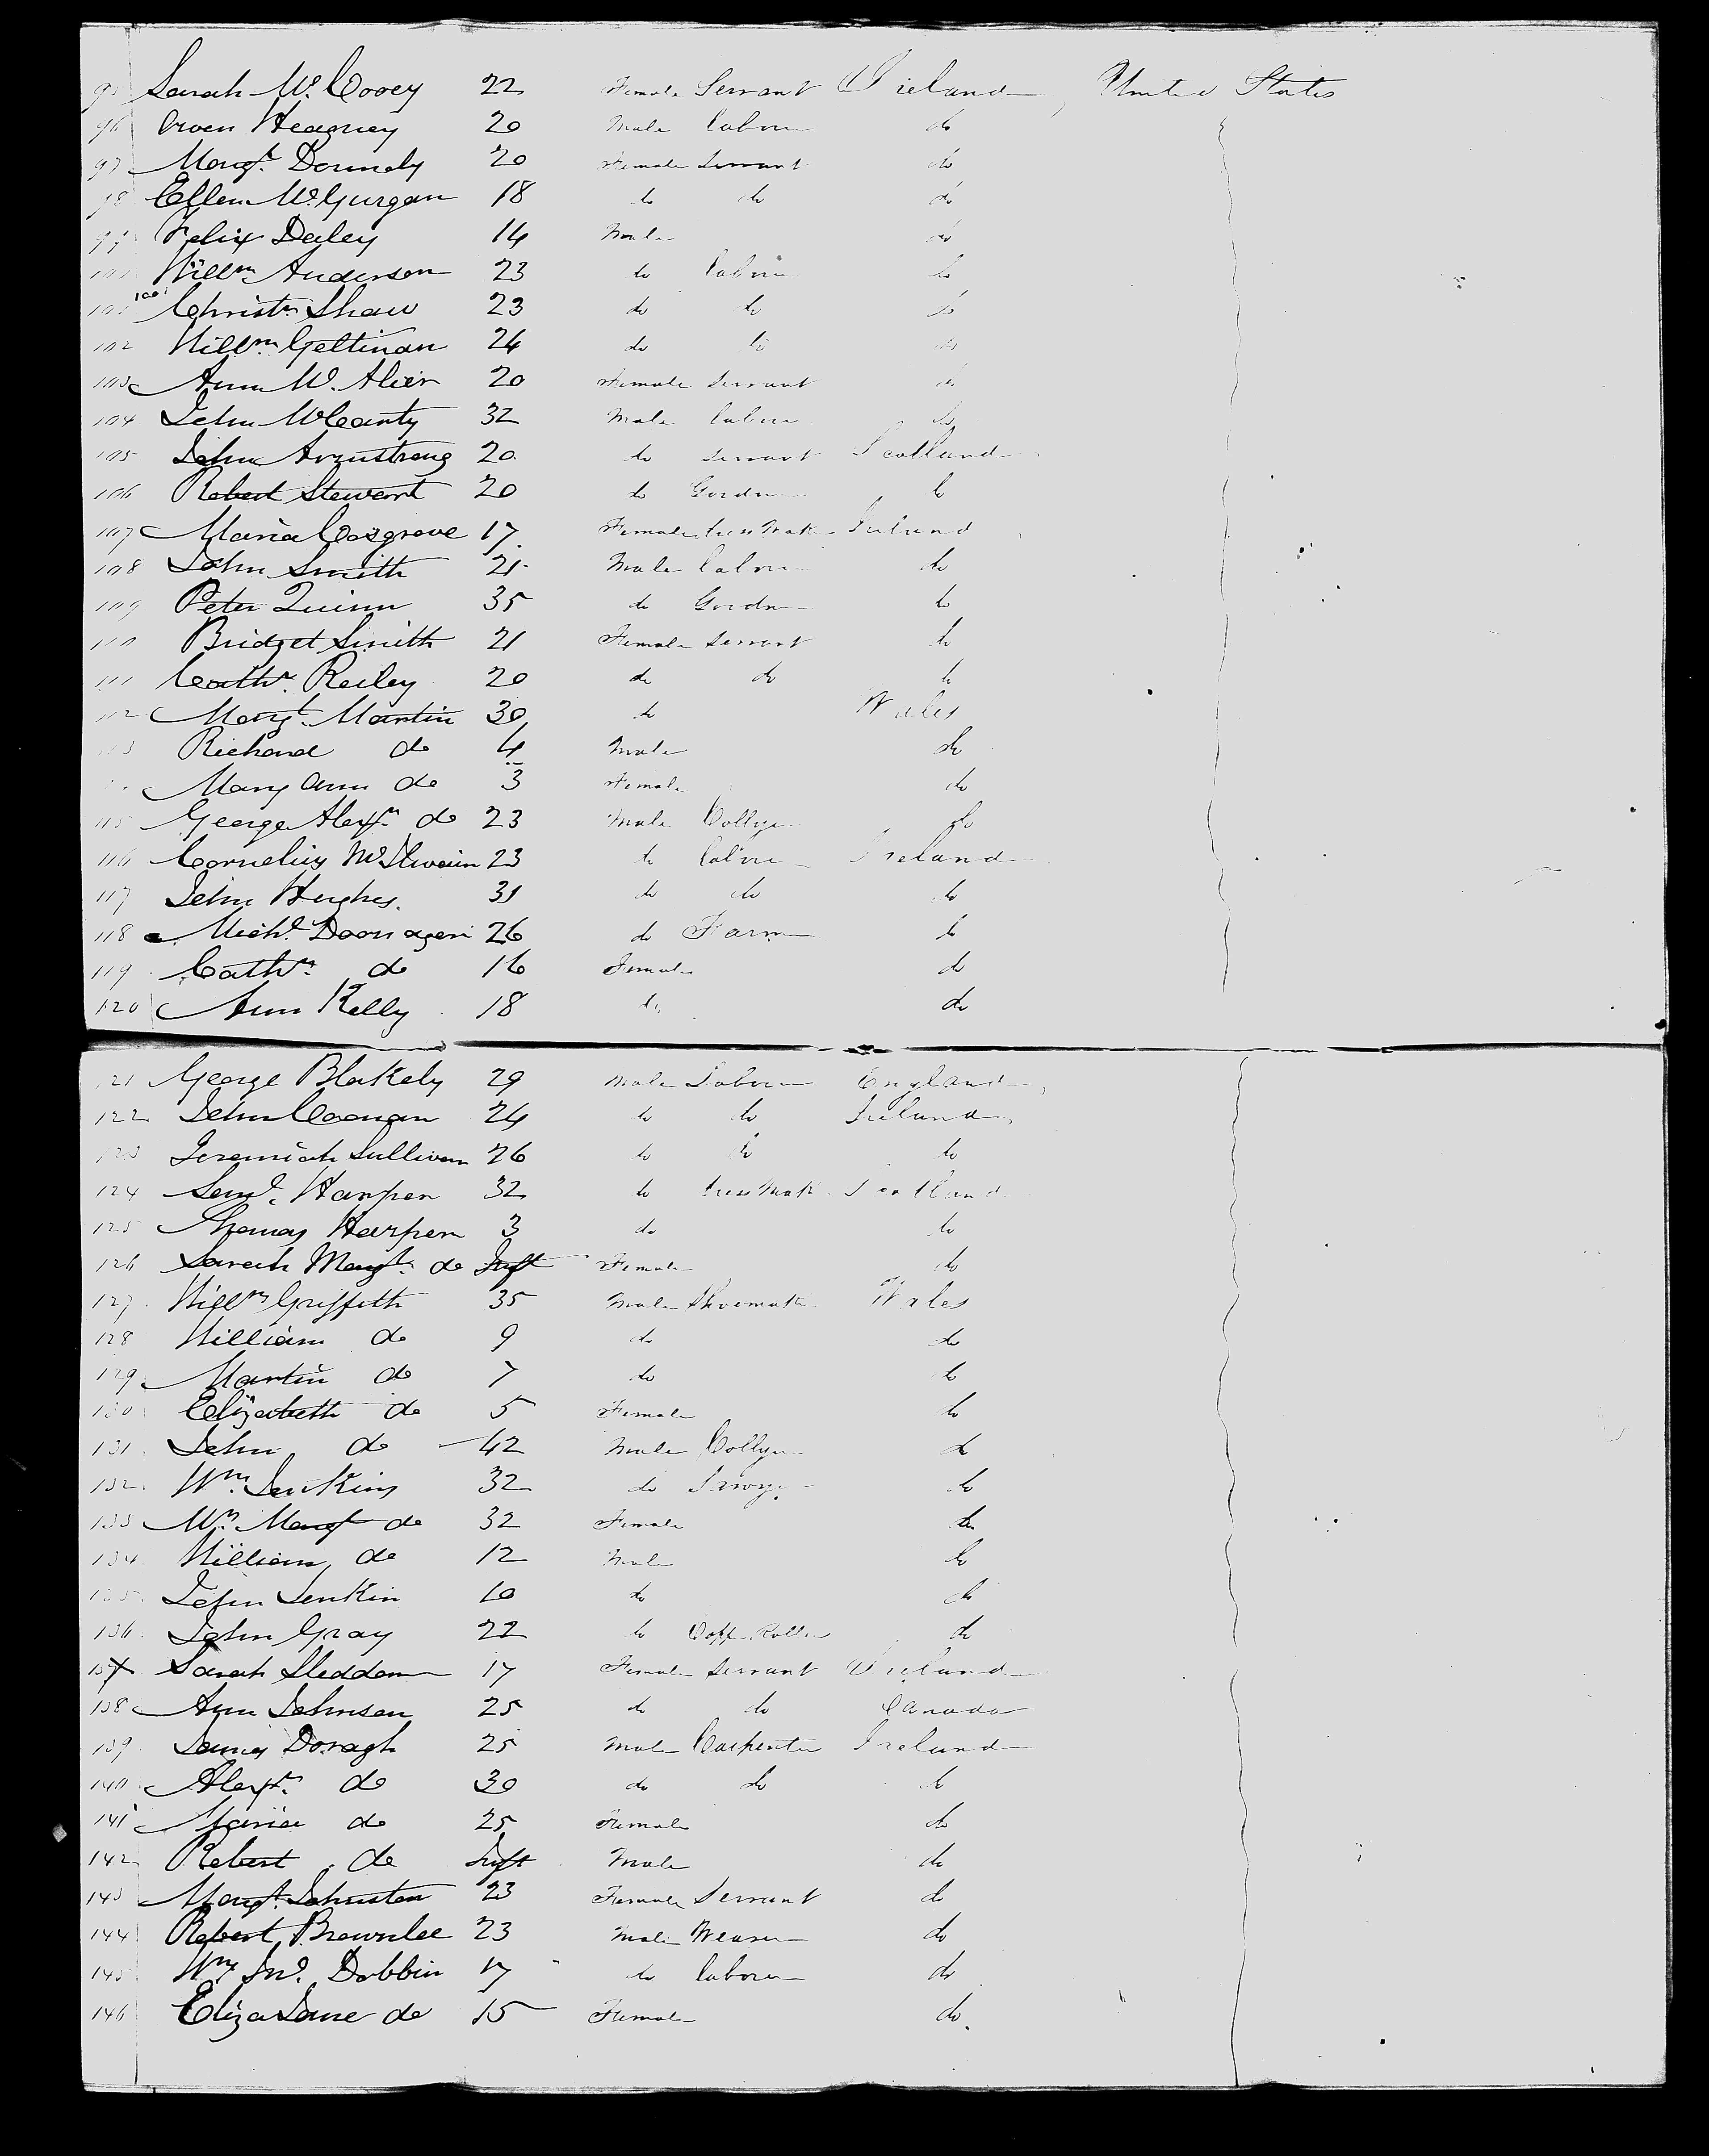 95 Sarah McCovey 22 Female Servant Ireland, United States
96 Owen Heagney 20 Male Labour do
97 Margt. Donnely 20 Female Servant do
98 Ellen McGurgan 18 do do do
99 Felix Daley 14 Male do
100 Willm Anderson 23 do Labour do
101 Christr Shaw 23 do do do
102 Willm Geltinan 24 do do do
103 Ann 20 Female Servant do
104 John McCarty 32 Male Labour do
105 John Armstrong 20 do Servant Scotland
106 Robert Stewart 20 do Gardn do
107 Maria Cosgrove 17 Female Dress Mak Ireland
108 John Smith 21 Male Labour do
109 Peter Quinn 35 do Gardn do
110 Bridget Smith 21 Female Servant do
111 Cathn. Reiley 20 do do do
112 Margt. Martin 30 do Wales
113 Richard do 4 Male do
Mary Ann do 3 Female do
115 George Alexr do 23 Male Collyer do
116 Cornelius McIlwain 23 do Labour Ireland
117 John Hughes. 31 do do do
118 Michl. 26 do Farm do
119 Cathn. do 16 Female do
120 Ann Kelly 18 do do
121 George Blakely 29 Male Labour England
122 John Coonan 24 do do Ireland
123 Jeremiah Sullivan 26 do do do
124 Saml. Harper 32 do Dress Mak Scotland
125 Thomas Harper 3 do do
126 Sarah Margt. do Inft Female do
127 Willm Griffith 35 Male Shoemak Wales
128 William do 9 do do
129 Martin do 7 do do
130 Elizabeth do 5 Female do
131 John do 42 Male Collyer do
132 Wm. Jenkins 32 do Sawyr do
133 Mrs. Margt do 32 Female do
134 William do 12 Male do
135 John Jenkin 10 do do
136 John Gray 22 do Copp Roller do
137 Sarah Sleddon 17 Female Servant Ireland
138 Ann Johnson 25 do do Canada
139 James Doragh 25 Male Carpenter Ireland
140 Alexr. do 30 do do do
141 Maria do 25 Female do
142 Robert do Inft Male do
143 Margt. Johnston 23 Female Servant do
144 Robert Brownlee 23 Male Weaver do
145 Wm Jno. Dobbin 17 do Labour do
146 Eliza Jane do 15 Female do.